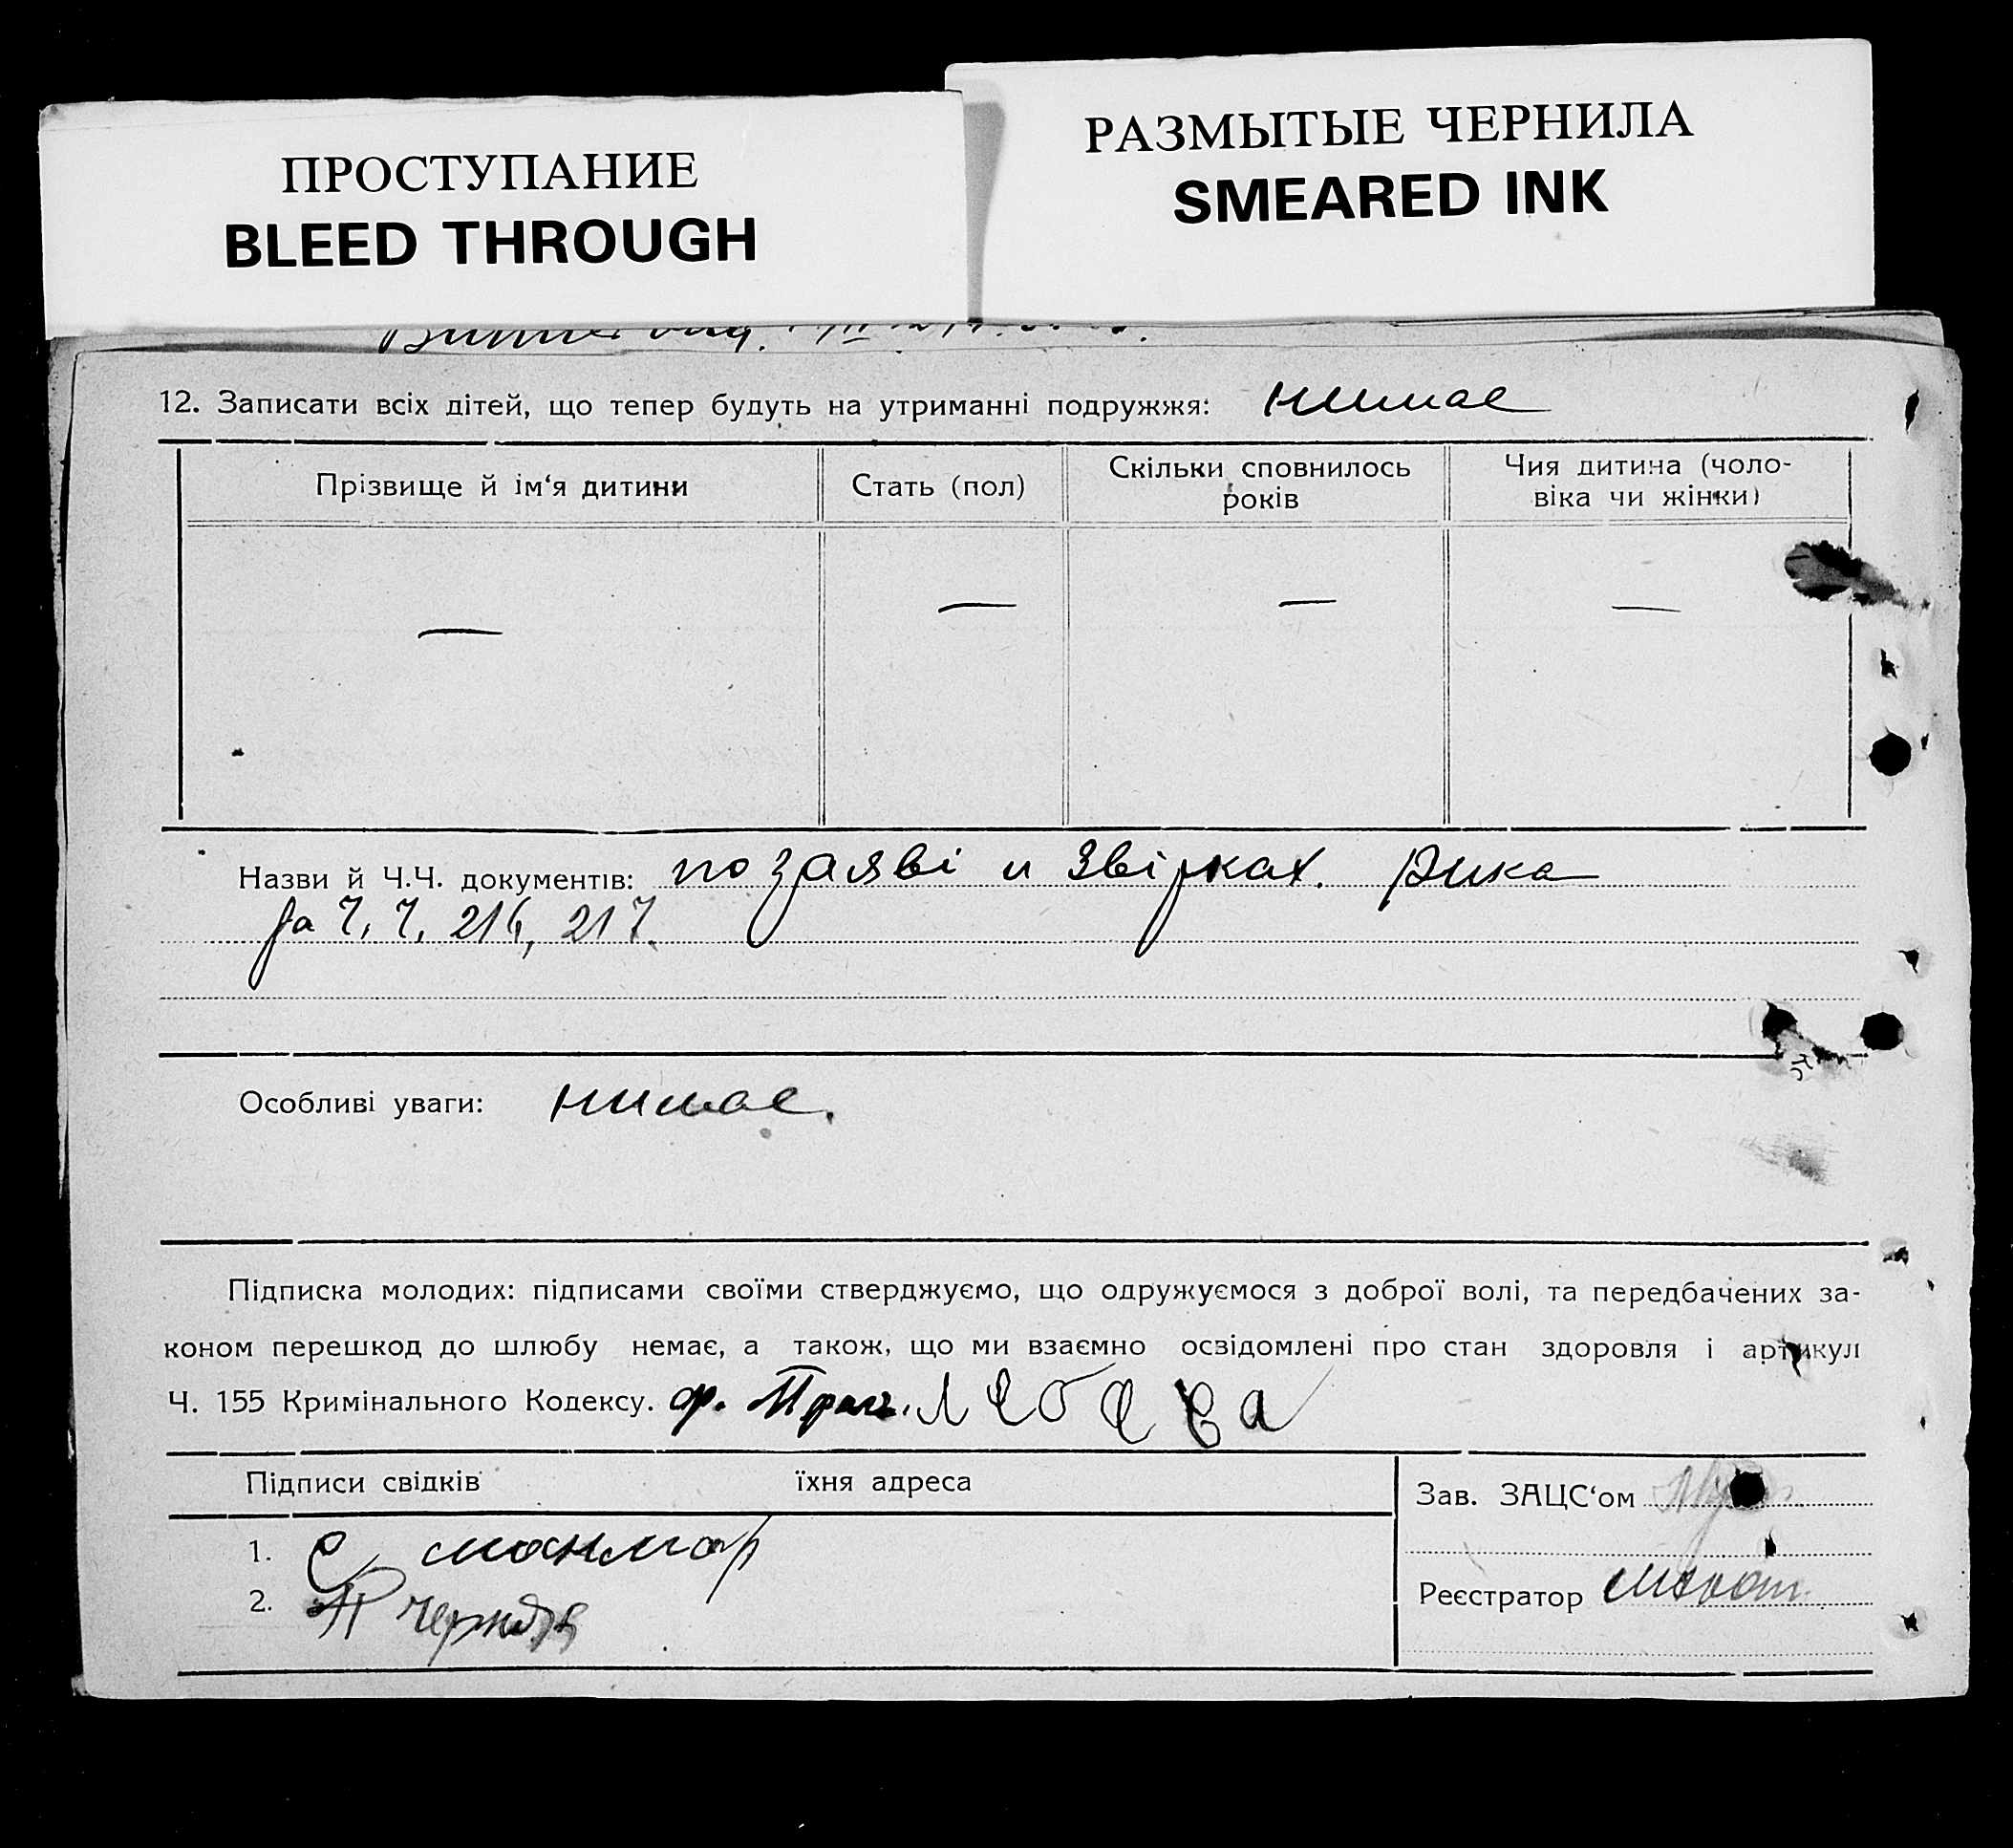 ПРОСТУПАНИЕ
BLEED THROUGH
РАЗМЫТЫЕ ЧЕРНИЛА
SMEARED INK
12. Записати всіх дітей, що тепер будуть на утриманні подружжя: нимає
Прізвище й ім‘я дитини
Стать (пол)
Скільки сповнилось
років
Чия дитина (чоло-
віка чи жінки)
—
—
—
—
Назви й Ч.Ч. документів: по заяві и Звірках. Рика
за Ч. Ч. 216, 217.
Особливі уваги: нимає.
Підписка молодих: підписами своїми стверджуємо, що одружуємося з доброї волі, та передбачених за-
коном перешкод до шлюбу немає, а також, що ми взаємно освідомлені про стан здоровля і артикул
Ч. 155 Кримінального Кодексу.
Підписи свідків
їхня адреса
Зав. ЗАЦС‘ом
1.
2.
Реєстратор